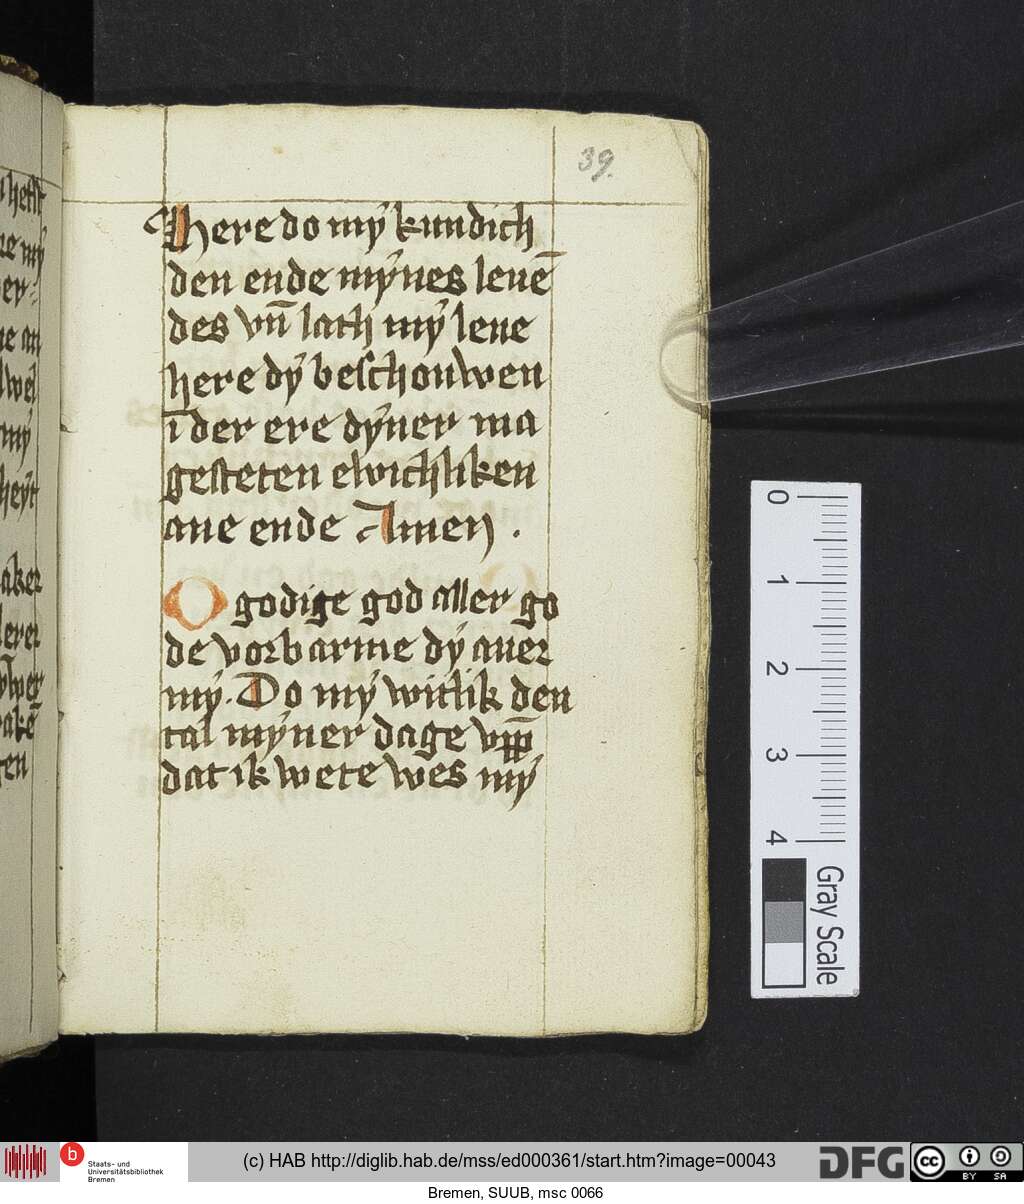 39.
Here do mẏ kundich
den ende mẏnes leuē
des vn̄ lath mẏ leue
here dẏ beschouwen
ī der ere dẏner ma
gesteten ewichliken
ane ende Amen .
O godige god aller go
de vorbarme dẏ auer
mẏ. Do mẏ witlik den
tal mẏner dage vpp̄
dat ik wete wes mẏ
0
1
2
3
4
Gray Scale
b
Staats- und
Universitätsbibliothek
Bremen
(c) HAB http://diglib.hab.de/mss/ed000361/start.htm?image=00043
DFG
cc
BY SA
Bremen, SUUB, msc 0066